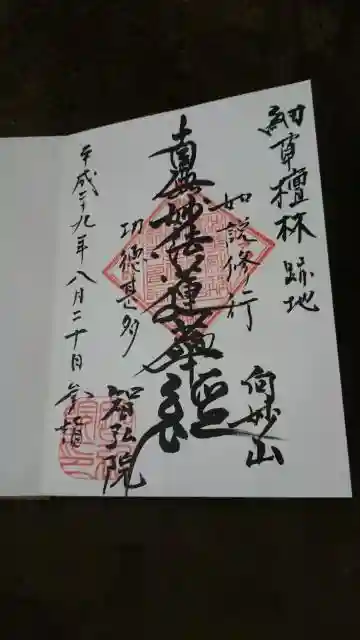 細草檀林 跡地
向妙山
如説修行
南無妙法蓮華経
功徳甚多
智弘院
平成二十九年八月二十日 参詣